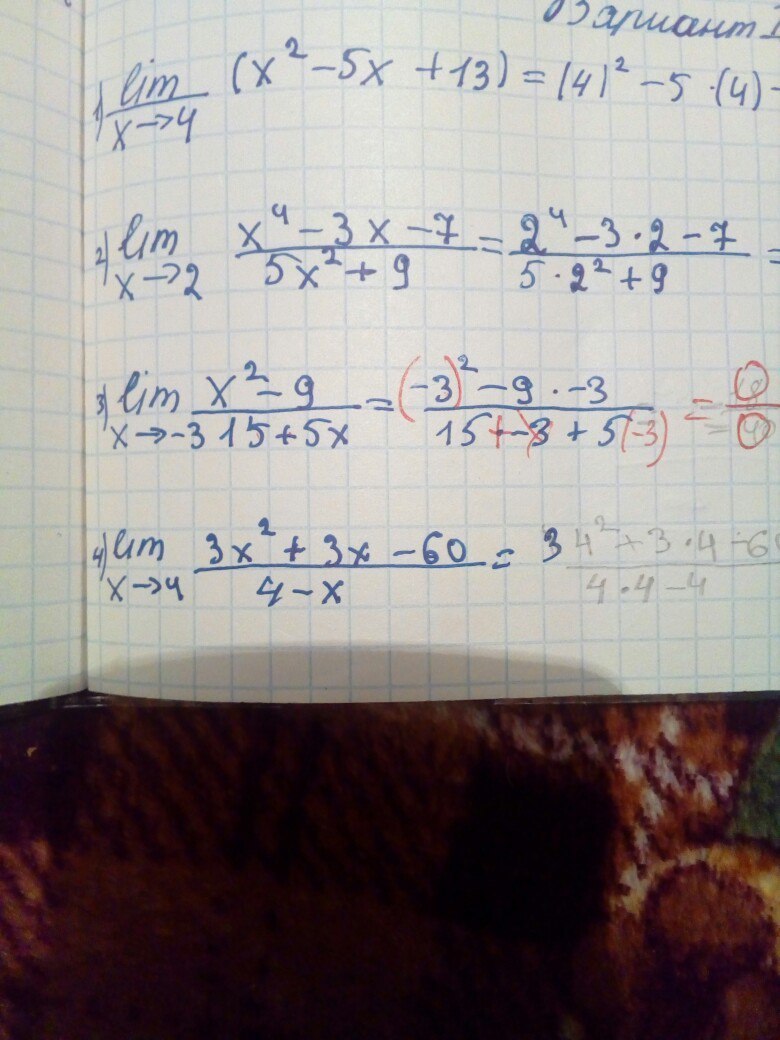 Вариант 1
1) lim x→4 (x² - 5x + 13) = (4)² - 5 · (4) -
2) lim x→2 (x⁴ - 3x - 7)/(5x² + 9) = (2⁴ - 3 · 2 - 7)/(5 · 2² + 9) =
3) lim x→-3 (x² - 9)/(15 + 5x) = ((-3)² - 9 · -3)/(15 + -3 + 5(-3)) = 0/0
4) lim x→4 (3x² + 3x - 60)/(4 - x) = 3 (4² + 3 · 4 - 60)/(4 · 4 - 4)